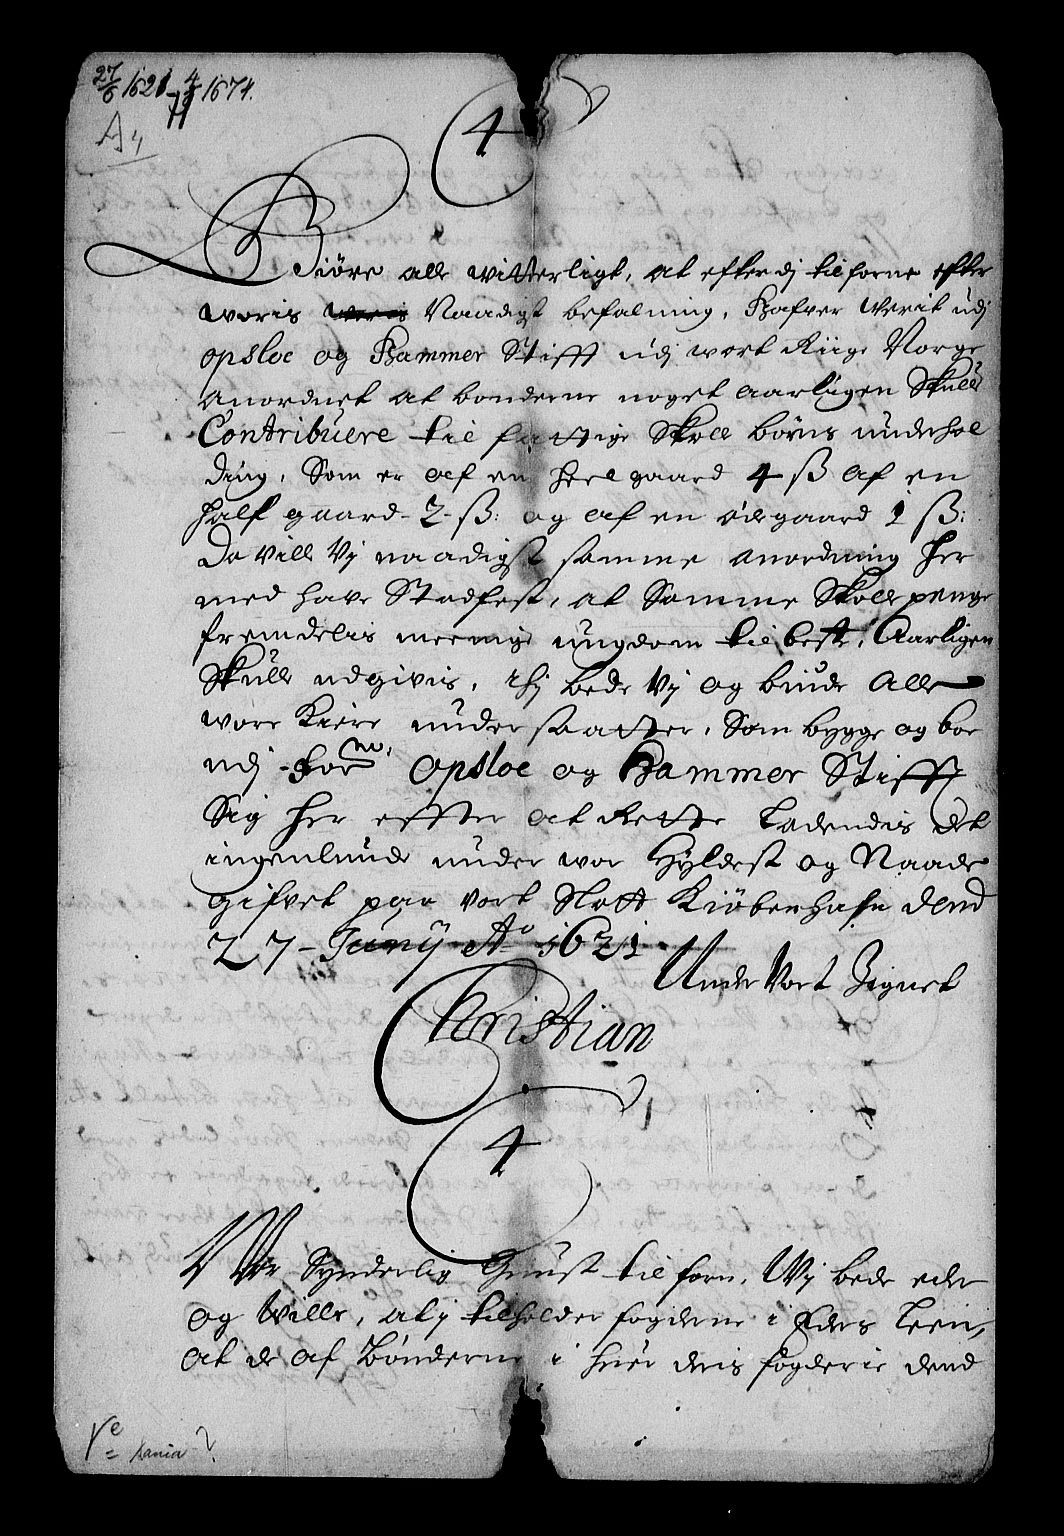 27/6 1621 - 4/11 1674.
A 4
C 4
Giöre alle witterligt, at efterdj tilforne efter
woris woris Naadigst befalning, Hafver werit udj
opsloe og Hammer Stifft udj wort Riige Norge
anordnet at bønderne noget aarligen Skulle
Contribuere til fattige Skole börns underhol
ding, Som er af en heel gaard 4 ß af en
half gaard - 2 - ß: og af en ödegaard 1 ß:
Da ville Vj naadigst samme anordning her
med have Stadfest, at Samme Skole penge
fremdelis meenige ungdom til beste, Aarligen
Skulle udgivis, thj bede Vj og biude Alle
wore Kiere undersaatter, Som bygge og boe
udj for.ne, Opsloe og Hammer Stifft
Sig her effter at Rette Ladendis det
ingenlunde under wor Hyldest og Naade
gifvet paa vort Slott Kiöbenhafn dend
27 - Junij A.o 1621
Under Vort Zignet
Christian
C 4
Wor Synderlig Gunst tilforn, Wj bede eder
og Wille, at j tilholder fogderne i Eders Leen,
at de af Bønderne i hver deris fogderie dend